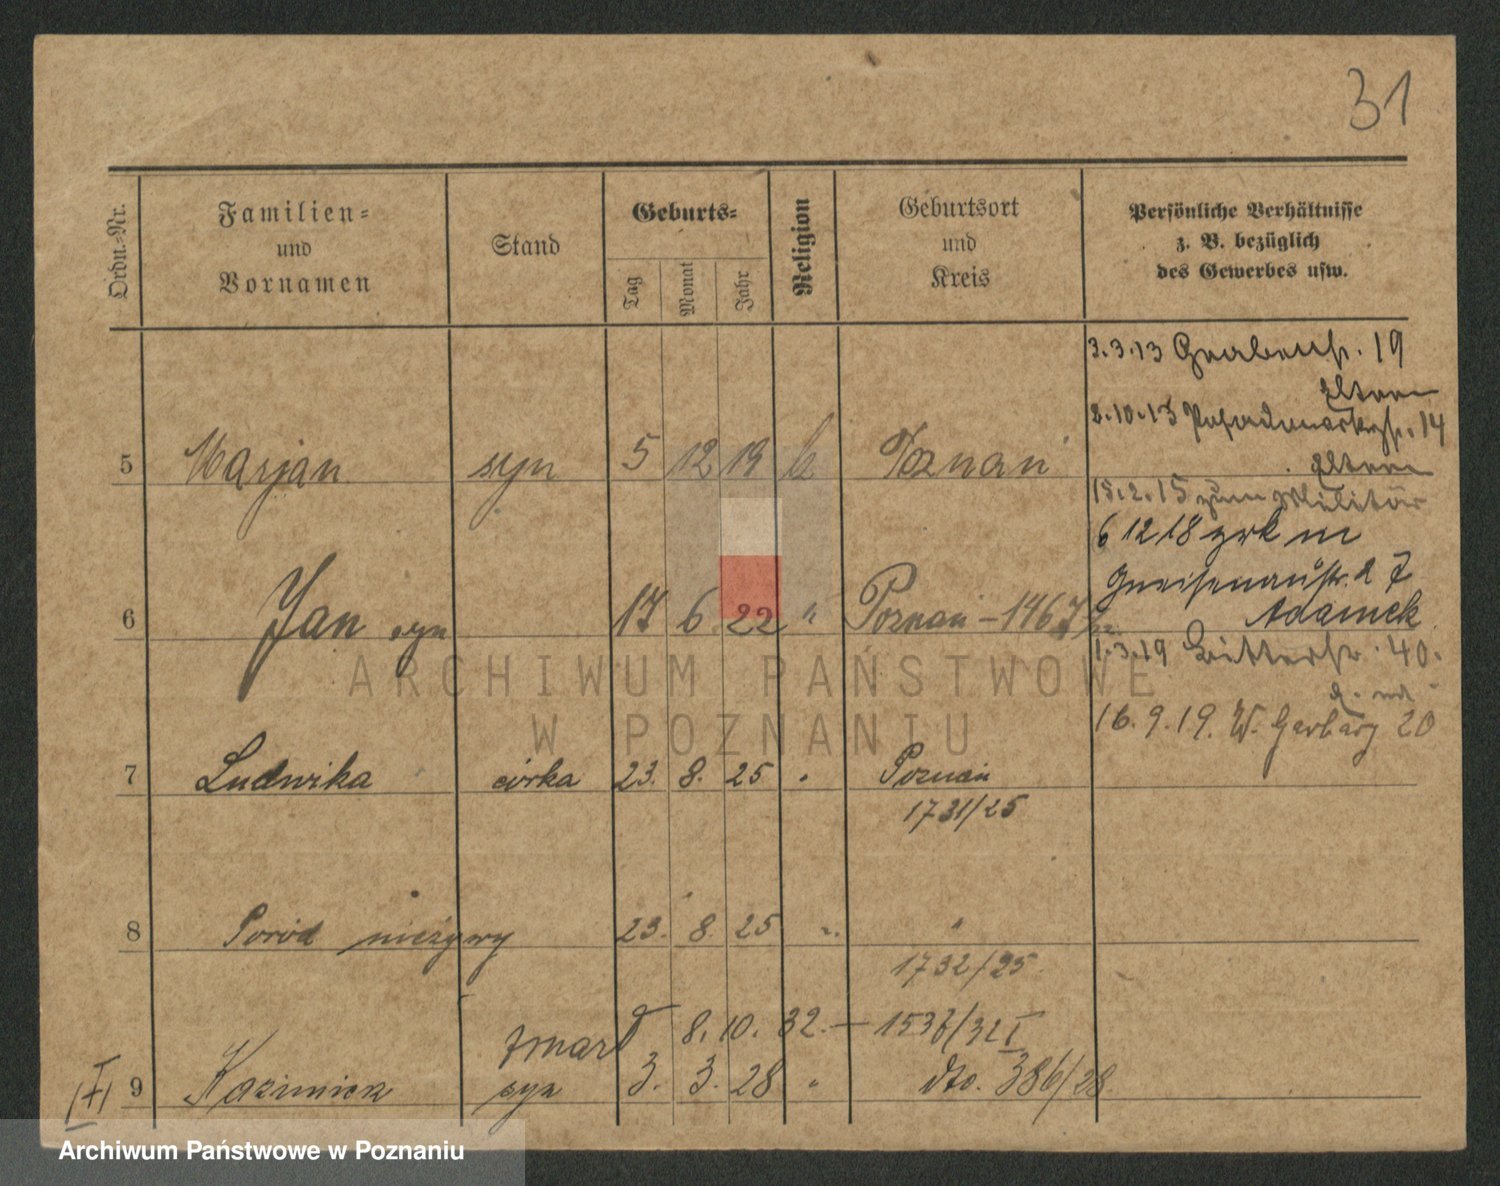 31
Ordn.-Nr.
Familien-
und
Vornamen
Stand
Geburts-
Tag
Monat
Jahr
Religion
Geburtsort
und
Kreis
Persönliche Verhältnisse
z. B. bezüglich
des Gewerbes usw.
3.3.13 Grabenstr. 19
Eltern
2.10.13 Posadowskystr. 14
Eltern
5 Marjan syn 5 12 19 k Poznań
15.2.15 zum Militär
6 12 18 zrk in
Gneisenaustr. 2
Adamek
6 Jan syn 17 6 22 " Poznań – 1467
1.3.19 Ritterstr. 40.
16.9.19. W. Garbary 20
7 Ludwika córka 23. 8. 25 " Poznań
1731/25
8 Poród nieżywy 23. 8. 25 " "
1732/25
zmarł 8. 10. 32. – 1536/32 I
9 Kazimierz syn 3. 3. 28 " dto. 386/28
ARCHIWUM PAŃSTWOWE
W POZNANIU
Archiwum Państwowe w Poznaniu